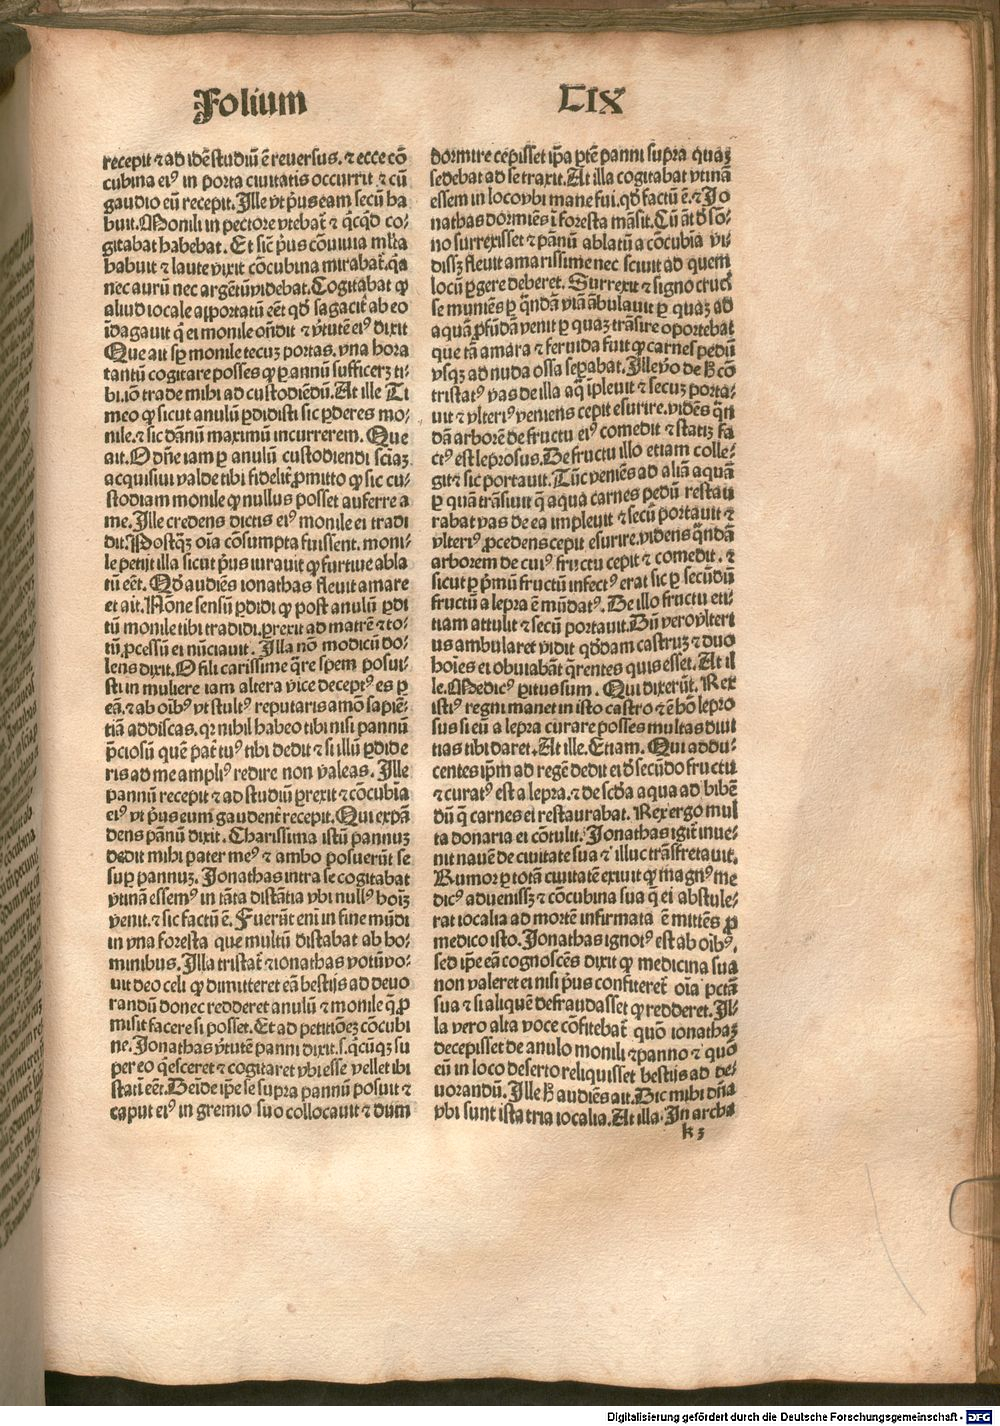 Folium LIX
recepit ⁊ ad idē studiū ē reuersus. ⁊ ecce cō
cubina eiꝰ in porta ciuitatis occurrit ⁊ cū
gaudio eū recepit. Ille vt p̄us eam secū ha
buit. Monili in pectore vtebat᷑ ⁊ q̄cq̄d co-
gitabat habebat. Et sic p̄us cōuiuia ml̄ta
habuit ⁊ laute vixit cōcubina mirabat᷑. q̄a
nec aurū nec argētū videbat. Cogitabat ꝙ
aliud iocale aꝑportatū eēt qd̓ sagacit᷑ ab eo
īdagauit q̄ ei monile on̄dit ⁊ v̓tutē eiꝰ dixit
Que ait sꝑ monile tecuꝫ portas. vna hora
tantū cogitare posses ꝙ ꝑ annū sufficerꝫ ti-
bi. iō trade mihi ad custodiēdū. At ille Ti
meo ꝙ sicut anulū ꝑdidisti sic ꝑderes mo-
nile. ⁊ sic dānū maximū incurrerem. Que
ait. O dn̄e iam ꝑ anulū custodiendi sciāꝫ
acquisiui valde tibi fidelit᷑ ꝓmitto ꝙ sic cu-
stodiam monile ꝙ nullus posset auferre a
me. Ille credens dictis eiꝰ monile ei tradi
dit. Postqꝫ oīa cōsumpta fuissent. moni-
le petijt illa sicut p̄us iurauit ꝙ furtiue abla
tū eēt. Qd̓ audiēs ionathas fleuit amare
et ait. Nōne sensū ꝑdidi ꝙ post anulū ꝑdi
tū monile tibi tradidi. ꝑrexit ad matrē ⁊ to-
tū ꝓcessū ei nūciauit. Illa nō modicū do-
lens dixit. O fili carissime q̄re spem posui-
sti in muliere iam altera vice deceptꝰ es ꝑ
eā. ⁊ ab oībꝰ vt stultꝰ reputaris amō sapiē-
tiā addiscas. qꝛ nihil habeo tibi nisi pannū
p̄ciosū quē pat̓ tuꝰ tibi dedit ⁊ si illū ꝑdide
ris ad me ampliꝰ redire non valeas. Ille
pannū recepit ⁊ ad studiū ꝑrexit ⁊ cōcubīa
eiꝰ vt p̄us eum gaudent᷑ recepit. Qui expā
dens pānū dixit. Charissima istū pannuꝫ
dedit mihi pater meꝰ ⁊ ambo posuerūt se
suꝑ pannuꝫ. Jonathas intra se cogitabat
vtinā essemꝰ in tāta distātia vbi nullꝰ hoīꝫ
venit. ⁊ sic factū ē. Fuerūt eni᷑ in fine mūdi
in vna foresta que multū distabat ab ho-
minibus. Illa tristat᷑ ⁊ ionathas votū vo-
uit deo celi ꝙ dimitteret eā bestijs ad deuo
randū donec redderet anulū ⁊ monile q̄ ꝓ
misit facere si posset. Et ad petitiōeꝫ cōcubi
ne. Jonathas v̓tutē panni dixit. s. q̄cūqꝫ su
per eo q̄esceret ⁊ cogitaret vbi esse vellet ibi
statī eēt. Deīde ip̄e se supra pannū posuit ⁊
caput eiꝰ in gremio suo collocauit ⁊ dum
dormire cepisset ip̄a ꝑtē panni supra quaꝫ
sedebat ad se traxit. At illa cogitabat vtinā
essem in loco vbi mane fui. qd̓ factū ē. ⁊ Jo
nathas dormiēs ī foresta māsit. Cū āt d̓ so-
no surrexisset ⁊ pānū ablatū a cōcubīa vi-
dissꝫ fleuit amarissime nec sciuit ad quem
locū ꝑgere deberet. Surrexit ⁊ signo crucꝭ
se muniēs ꝑ q̄ndā viā ābulauit ꝑ quaꝫ ad
aquā ꝓfūdā venit ꝑ quaꝫ trāsire oportebat
que tā amara ⁊ feruida fuit ꝙ carnes pedū
vsqꝫ ad nuda ossa seꝑabat. Ille v̓o de h̓ cō
tristatꝰ vas de illa aq̄ īpleuit ⁊ secuꝫ porta-
uit ⁊ vlteriꝰ veniens cepit esurire. vidēs q̄n
dā arborē de fructu eiꝰ comedit ⁊ statiꝫ fa
ctꝰ est leprosus. De fructu illo etiam colle-
git ⁊ sic portauit. Tūc veniēs ad aliā aquā
ꝑ quā trāsiuit q̄ aqua carnes pedū restau
rabat vas de ea impleuit ⁊ secū portauit ⁊
vlteriꝰ ꝓcedens cepit esurire. videns q̄ndā
arborem de cuiꝰ fructu cepit ⁊ comedit. ⁊
sicut ꝑ p̄mū fructū infectꝰ erat sic ꝑ secūdū
fructū a lepra ē mūdatꝰ. De illo fructu eti-
tiam attulit ⁊ secū portauit. Dū vero vlteri
us ambularet vidit qd̓dam castruꝫ ⁊ duo
hoīes ei obuiabāt q̄rentes quis esset. At il
le. Medicꝰ ꝑitus sum. Qui dixerūt. Rex
istiꝰ regni manet in isto castro ⁊ ē hō lepro
sus si eū a lepra curare posses multas diui
tias tibi daret. At ille. Etiam. Qui addu-
centes ip̄m ad regē dedit ei d̓ secūdo fructu
⁊ curatꝰ est a lepra. ⁊ de scd̓a aqua ad bibē
dū q̄ carnes ei restaurabat. Rex ergo mul
ta donaria ei cōtulit. Jonathas igit᷑ inue-
nit nauē de ciuitate sua ⁊ illuc trāsfretauit.
Rumor ꝑ totā ciuitatē exiuit ꝙ magnꝰ me
dicꝰ aduenissꝫ ⁊ cōcubina sua q̄ ei abstule-
rat iocalia ad mortē infirmata ē mittēs ꝓ
medico isto. Jonathas ignotꝰ est ab oībꝰ.
sed ip̄e eā cognoscēs dixit ꝙ medicina sua
non valeret ei nisi p̄us confiteret᷑ oīa pctā
sua ⁊ si aliquē defraudasset ꝙ redderet. Il-
la vero alta voce cōfitebat᷑ quō ionathaꝫ
decepisset de anulo monili ⁊ panno ⁊ quō
eū in loco deserto reliquisset bestijs ad de-
uorandū. Ille h̓ audiēs ait. Dic mihi dn̄a
vbi sunt ista tria iocalia. At illa. In archa
k 3
Digitalisierung gefördert durch die Deutsche Forschungsgemeinschaft - DFG